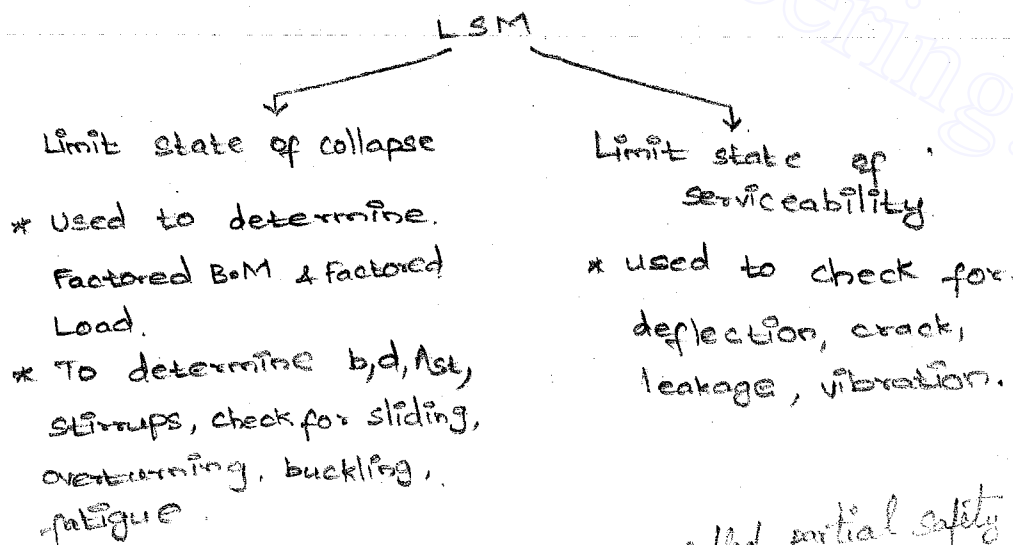 LSM
Limit state of collapse
* Used to determine.
Factored B.M & Factored
Load.
* To determine b,d, Ast,
stirrups, check for sliding,
overturning, buckling,
fatigue.
Limit state of
serviceability
* used to check for
deflection, crack,
leakage, vibration.
partial safety
ering.